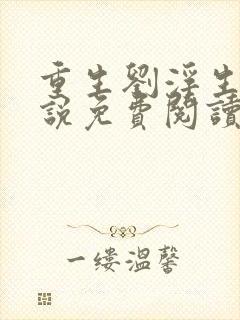 重生劉淫生
說免費閱讀
一缕溫馨